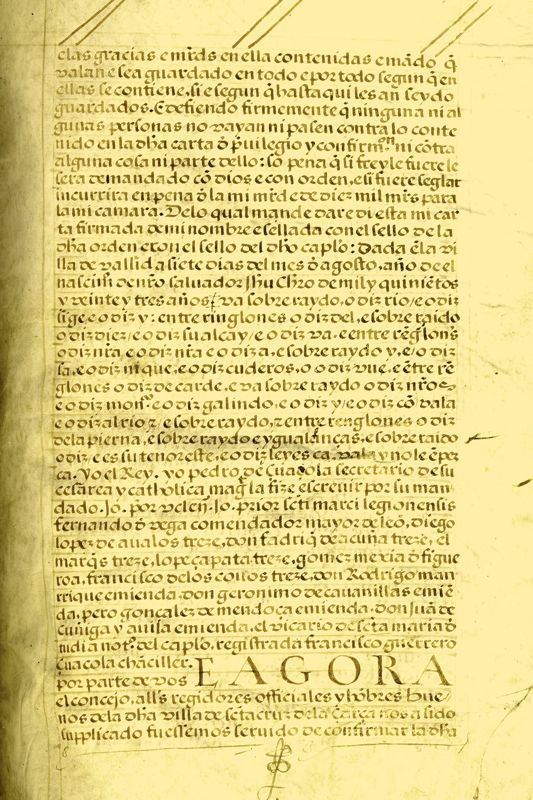 elas gracias e mrds en ella contenidas e mãdo q̃
valan e sea guardado en todo e por todo segun q̃ en
ellas se contiene, si e segun q̃ hasta qui les an seydo
guardados. E defiendo firmemente q̃ ninguna ni al
gunas personas no vayan ni pasen contra lo conte
nido en la dha carta ð p̃uilegio y confirmⁿ ni cõtra
alguna cosa ni parte dello: so pena q̃ si freyle fuere le
sera demandado cõ dios e con orden, e si fuere seglar
incurrira en pena ð la mi mrde de diez mil mrs para
la mi camara. Delo qual mande dar e di esta mi car
ta firmada de mi nombre e sellada con el sello de la
dha orden e con el sello del dho caplo: Dada ẽla vi
lla de vallid a siete dias del mes ð agosto, año de el
nascimi de nro saluador Jhu Chro de mil y quiniẽtos
y veinte y tres años, va sobre raydo, o diz rio, e o diz
e o diz y: entre ringlones o diz del, e sobre raido
o diz diez, e o diz su alcay, e o diz va. e entre rẽglons
o diz nra, e o diz nra e o diz a, e sobre raydo y, e o diz
sa, e o diz ni que, e o diz cuderos, o diz vue, e ẽtre rẽ
glones o diz de carde, e va sobre raydo o diz nros
e o diz monᵒ. e o diz galindo, e o diz y, e o diz cõ vala
e o diz al rio z, e sobre raydo, z entre renglones o diz
de la pierna, e sobre raydo e ygualãças, e sobre raido
o diz e es su tenor este, e o diz leyes ca. vala y no le ẽpez
ca. Yo el Rey. yo pedro de Çuaçola secretario de su
cesarea y catholica mag. la fize escreuir por su man
dado. Jo. por velen. Jo. prior scti marci legionensis
fernando ð vega comendador mayor de leõ, diego
lopez de aualos treze, don fadriq̃ de acuña treze, el
marq̃s treze, lope çapata treze, gomez mexia ð figue
roa, francisco de los couos treze, don Rodrigo man
rrique emienda, don geronimo de cauanillas emiẽ
da, pero gonçalez de mendoca emienda. don Juã de
Cuñiga y auisa emienda, el vicario de scta maria ð
tudia notᵒ. del caplo, registrada francisco guerrero
Çuacola chãciller. E AGORA
por parte de vos
el concejo, allˢ regidores officiales y hõbres bue
nos de la dha villa de sctacruz de la Çarça nos a sido
supplicado fuessemos seruido de confirmar la dha